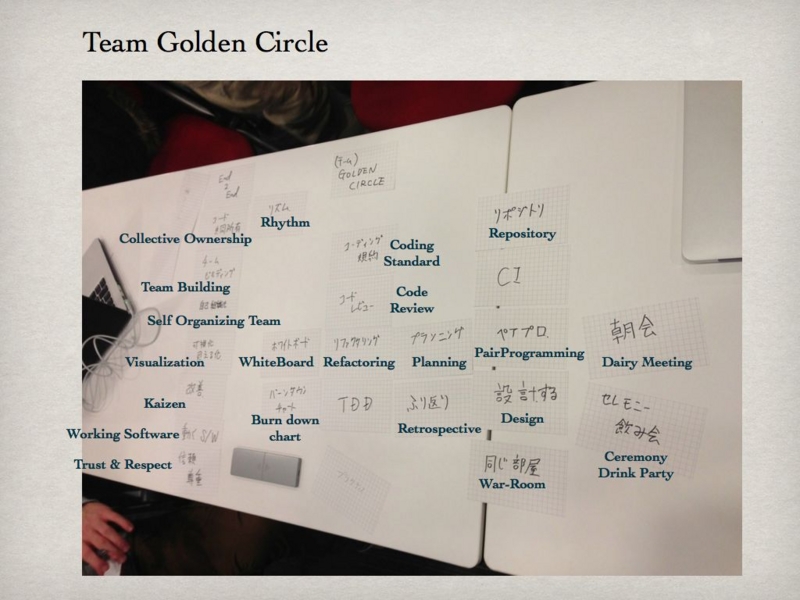 Team Golden Circle
End
2
End
(チーム)
GOLDEN
CIRCLE
リズム
Rhythm
リポジトリ
Repository
コード
共同所有
Collective Ownership
コーディング
規約
Coding
Standard
チーム
ビルディング
Team Building
CI
自己組織化
Self Organizing Team
コード
レビュー
Code
Review
可視化
見える化
Visualization
ホワイトボード
WhiteBoard
リファクタリング
Refactoring
プランニング
Planning
ペアプロ
PairProgramming
朝会
Dairy Meeting
改善
Kaizen
バーンダウン
チャート
Burn down
chart
TDD
ふり返り
Retrospective
設計する
Design
セレモニー
飲み会
Ceremony
Drink Party
Working Software
動く S/W
Trust & Respect
信頼
尊重
同じ部屋
War-Room